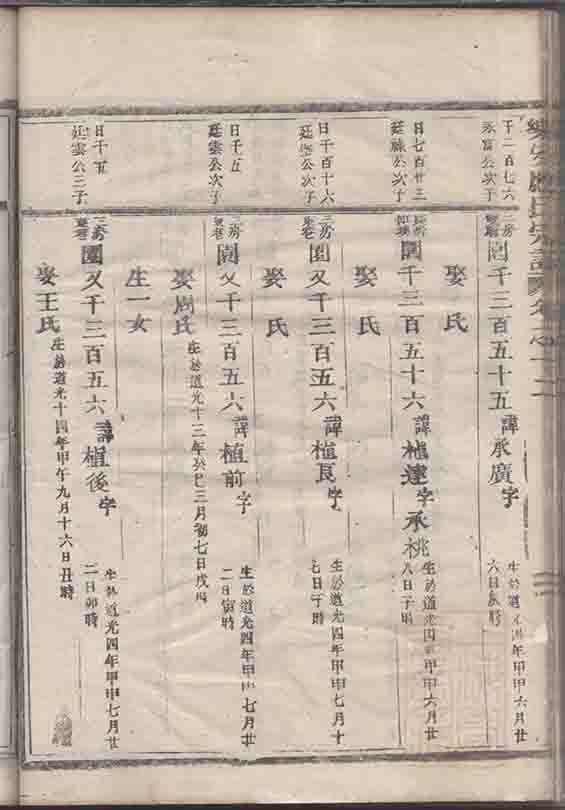 千二百七六
永富公次子
三房
園千三百五十五諱承廣字
六日辰時
娶氏
日七百廿三
廷祿公次子
園千三百五十六諱植達字承桃
生於道光四年甲申六月廿
八日子時
娶氏
日千百十六
廷璧公次子
三房
園又千三百五六諱植良字
生於道光四年甲申七月十
七日子時
娶氏
日千五
廷雲公次子
三房
園又千三百五六諱植前字
生於道光四年甲申七月廿
二日寅時
娶周氏
生於道光十三年癸巳三月初七日戌時
生一女
日千五
廷雲公三子
三房
園又千三百五六諱植後字
生於道光四年甲申七月廿
二日卯時
娶王氏
生於道光十四年甲午九月十六日丑時